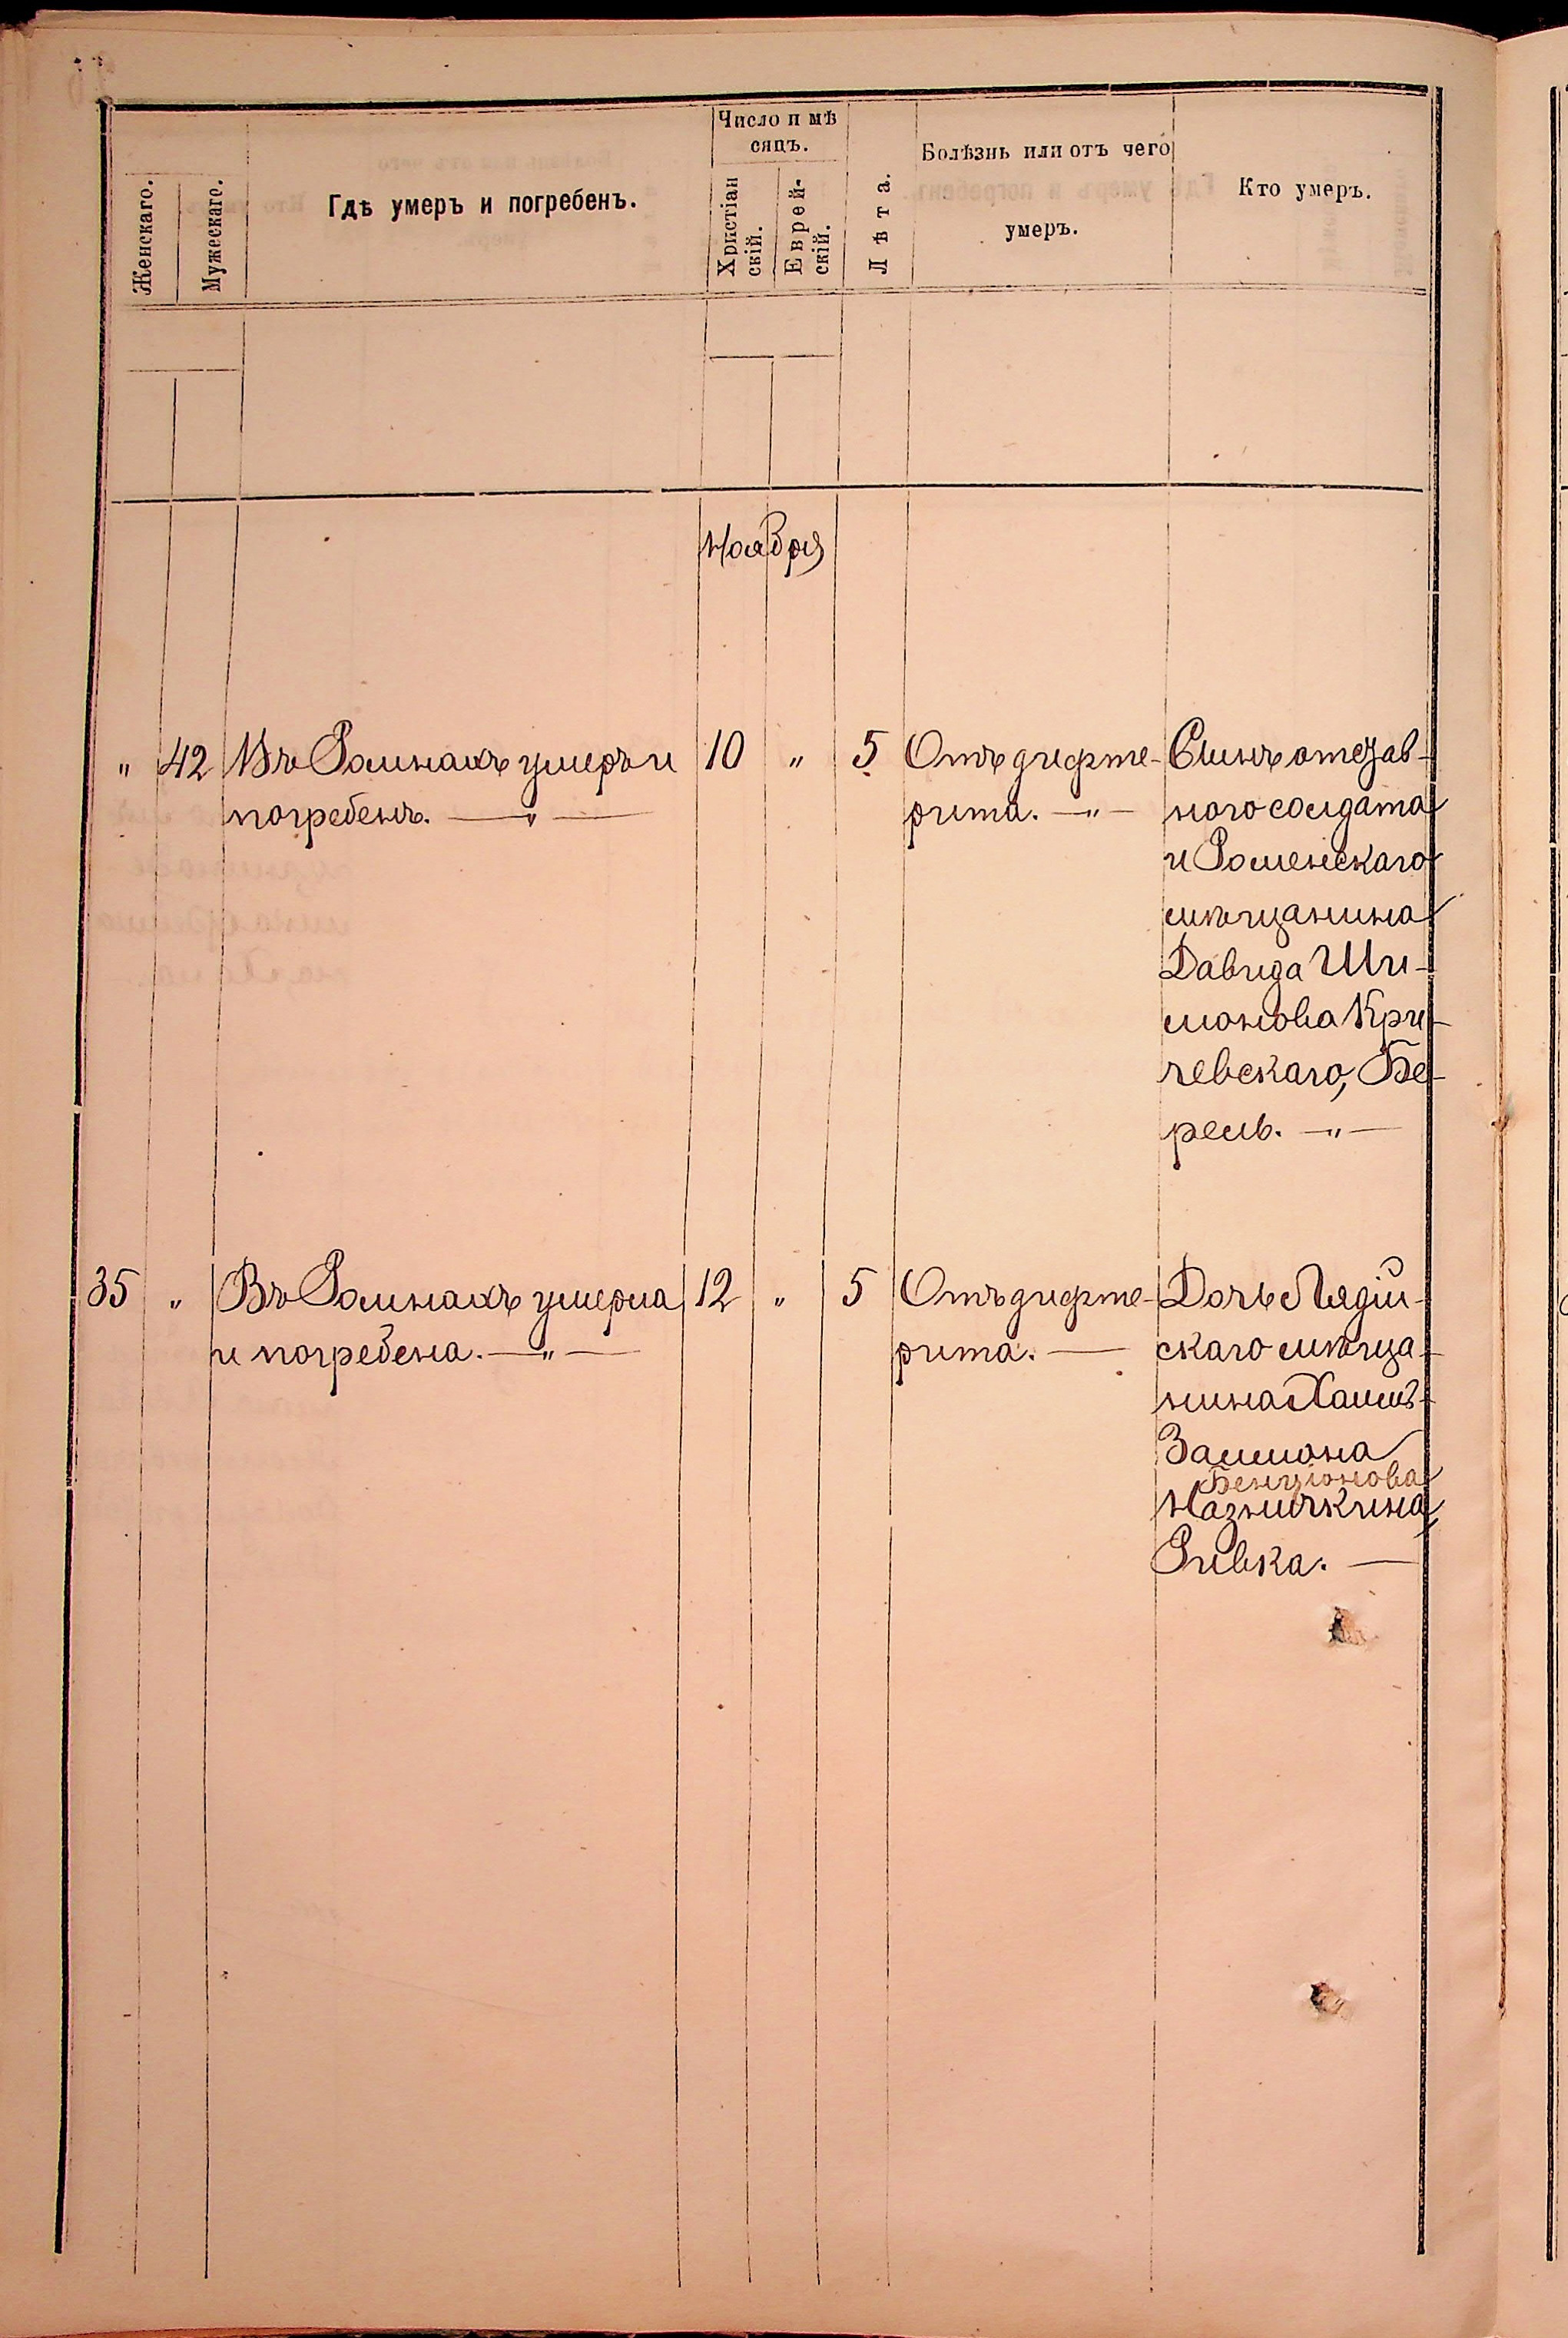 Женскаго.
Мужескаго.
Гдѣ умеръ и погребенъ.
Число и мѣ
сяцъ.
Христіан
скій.
Еврей-
скій.
Лѣта.
Болѣзнь или отъ чего
умеръ.
Кто умеръ.
Ноября
" 42 Въ Ромнахъ умеръ и
погребенъ. — " —
10 " 5
Отъ дифте-
рита. — " —
Сынъ отстав-
ного солдата
и Роменскаго
мѣщанина
Давида Ши-
монова Кри-
чевскаго, Бе-
рель. — " —
35 " Въ Ромнахъ умерла
и погребена. — " —
12 " 5
Отъ дифте-
рита. —
Дочь Лядій-
скаго мѣща-
нина Хаимъ-
Залмона
Бенціонова
Разничкина
Ривка. —